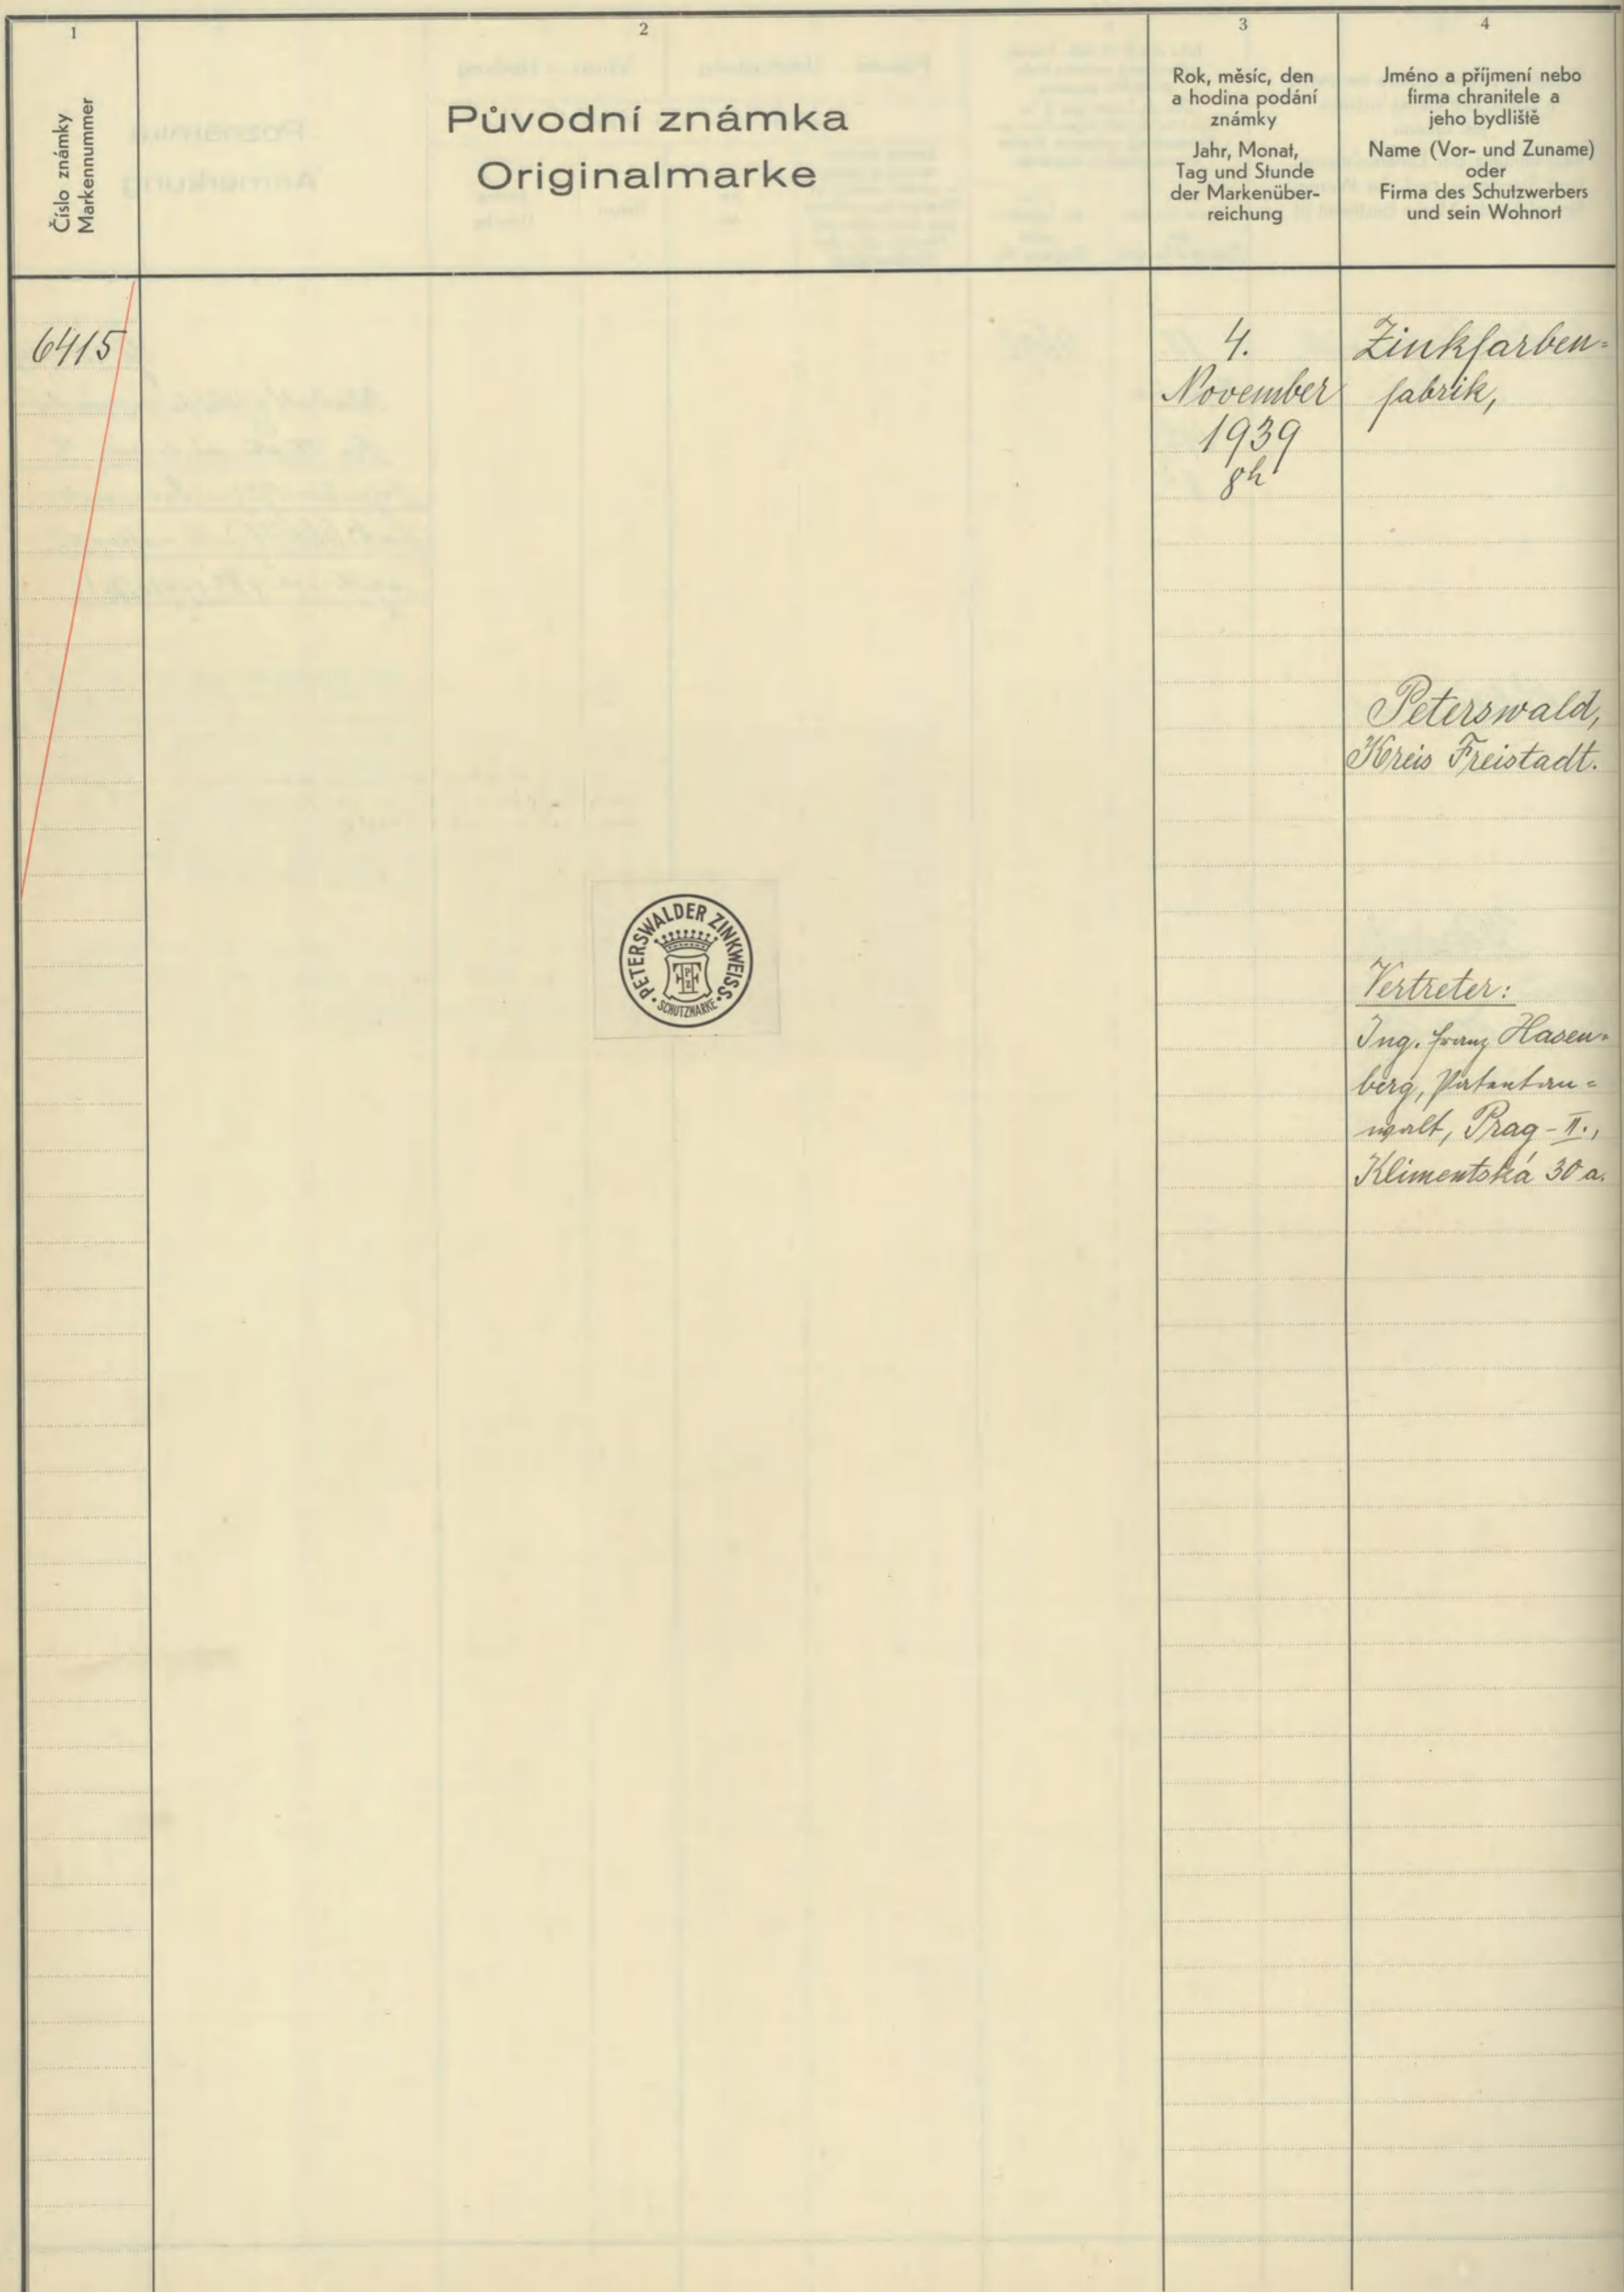 1
Číslo známky
Markennummer
2
Původní známka
Originalmarke
3
Rok, měsíc, den
a hodina podání
známky
Jahr, Monat,
Tag und Stunde
der Markenüber-
reichung
4
Jméno a příjmení nebo
firma chranitele a
jeho bydliště
Name (Vor- und Zuname)
oder
Firma des Schutzwerbers
und sein Wohnort
6415
PETERSWALDER ZINKWEISS
SCHUTZMARKE
4.
November
1939
8h
Zinkfarben=
fabrik,
Peterswald,
Kreis Freistadt.
Vertreter:
Ing. Franz Hasen=
berg, Patentan=
walt, Prag-II.,
Klimentská 30 a.